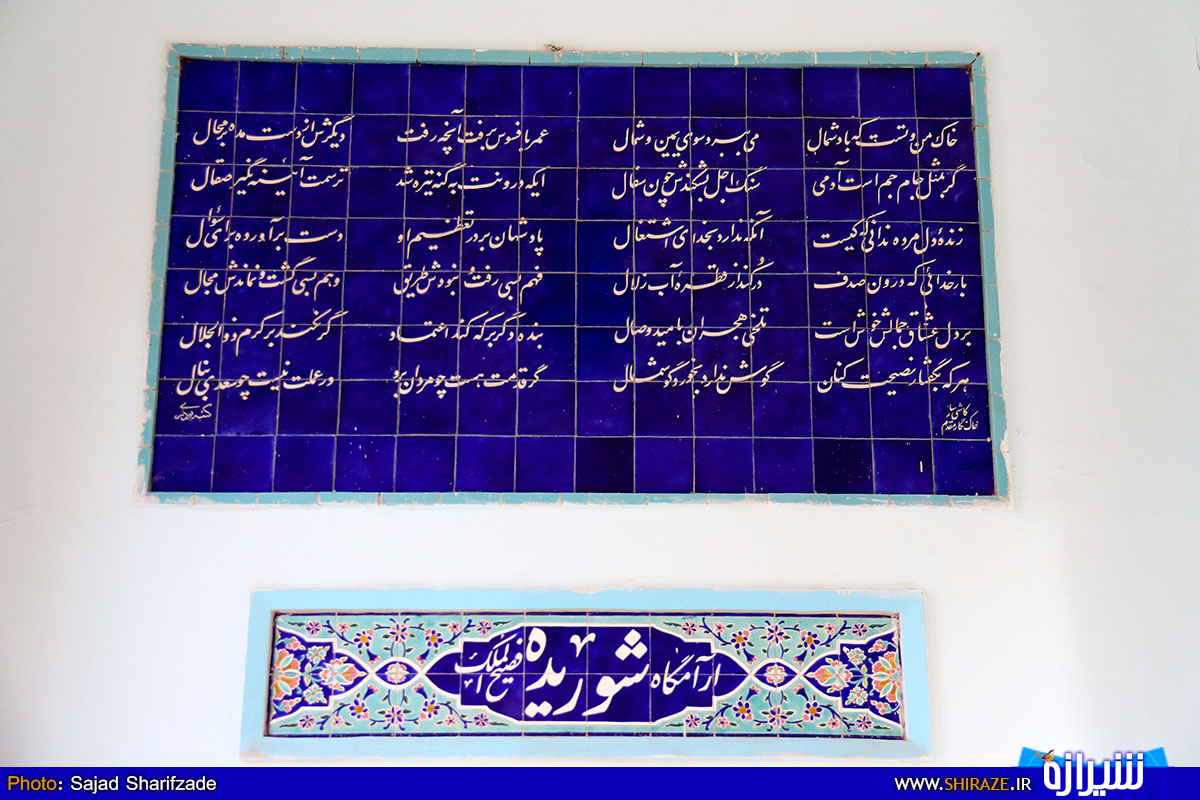 خاک من و تست که باد شمال می‌ببرد سوی یمین و شمال عمر بافسوس برفت آنچه رفت دیگرش از دست مده بر محال
گر بمثل جام جم است آدمی سنگ اجل بشکندش چون سفال ایکه درونت بگنه تیره شد ترسمت آئینه نگیرد صقال
زندهٔ دل مرده ندانی که کیست آنکه ندارد بخدای اشتغال پادشهان بر در تعظیم او دست برآورده برای سؤال
بارخدائی که درون صدف در کند از قطرهٔ آب زلال فهم بسی رفت و نبودش طریق وهم بسی گشت و نماندش مجال
بر دل عشاق جمالش خوش است تلخی هجران بامید وصال بنده دگر بر که کند اعتماد گر نکند بر کرم ذو الجلال
هر که بگفتار نصیحت کنان گوش ندارد بخورد گوشمال گر قدمت هست چو مردان برو ور عملت نیست چو سعدی بنال
کاشی ساز
خاک نگار مقدم
آرامگاه شوریده فصیح الملک
Photo: Sajad Sharifzade
WWW.SHIRAZE.IR
شیرازه